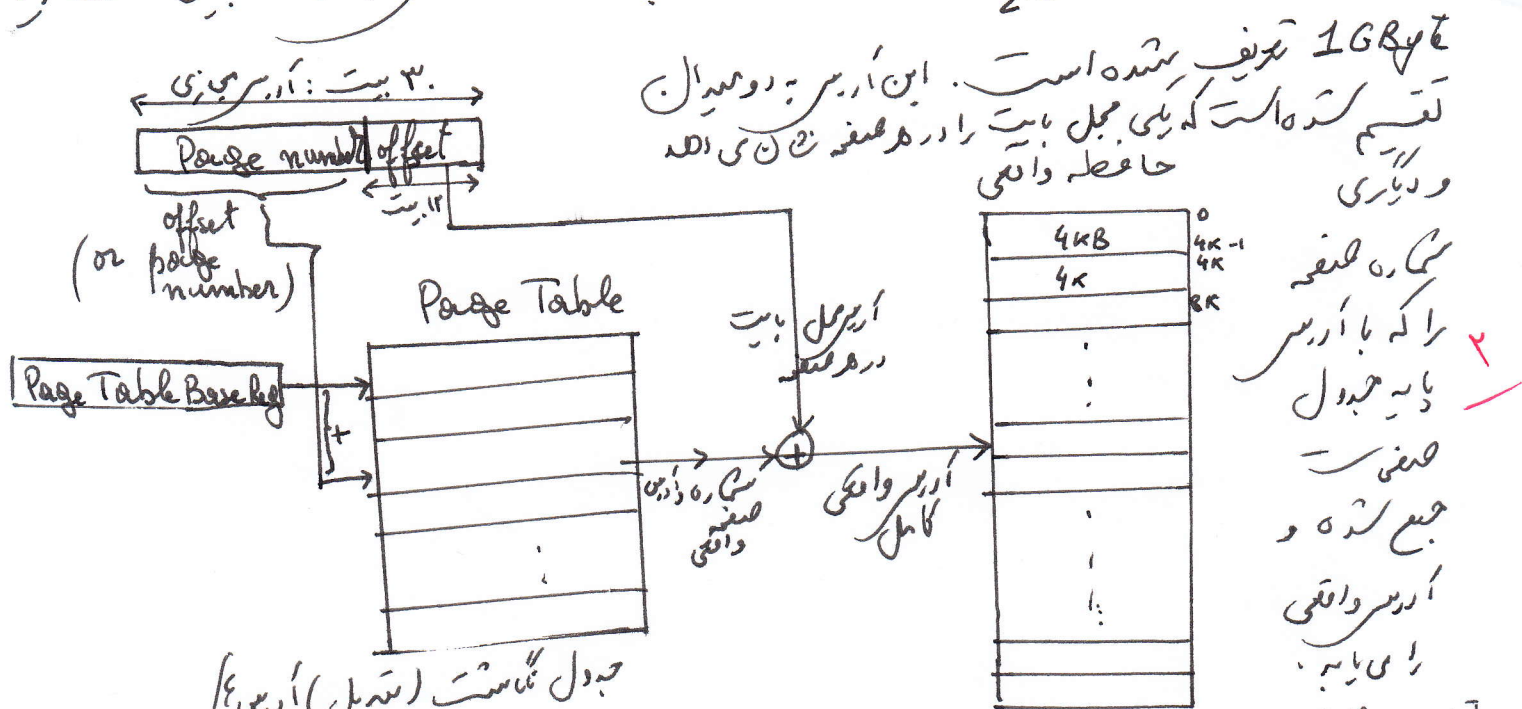 1 GByte تعریف شده است. این آدرس به دو میدان
تقسیم شده است که یکی محل بایت را در هر صفحه نشان می دهد
و دیگری
شماره صفحه
را که با آدرس
پایه جدول
صفحات
جمع شده و
آدرس واقعی
را می یابد.
۲
۳۰ بیت: آدرس مجازی
Page number offset
۱۲ بیت
offset
(or page
number)
Page Table
Page Table Base Reg
+
آدرس محل بایت
در هر صفحه
شماره یا آدرس
صفحه
واقعی
+
آدرس واقعی
کامل
حافظه واقعی
4KB
4K
0
4K-1
4K
8K
جدول نگاشت (تبدیل) آدرس